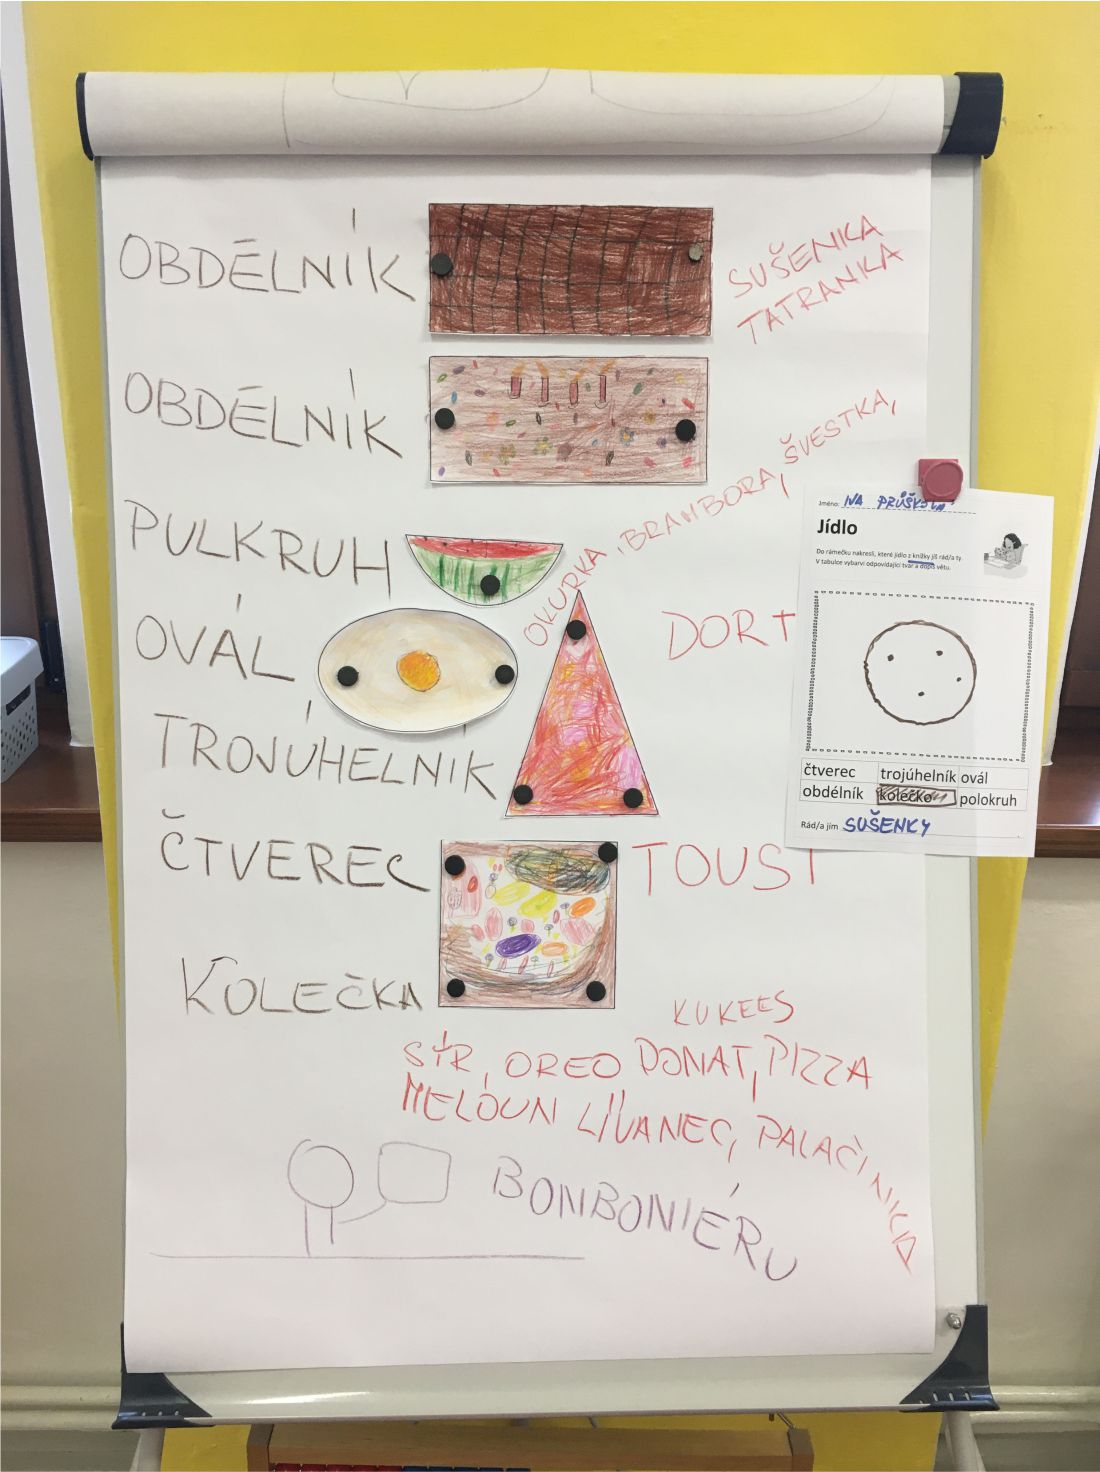 OBDÉLNÍK
SUŠENKA
TATRANKA
OBDÉLNÍK
OKURKA, BRAMBORA, ŠVESTKA,
PULKRUH
OVÁL
DORT
TROJÚHELNÍK
ČTVEREC
TOUST
KOLEČKA
KUKEES
SÝR, OREO DONAT, PIZZA
MELOUN LÍVANEC, PALAČINKA
BONBONIÉRU
Jméno: IVA PRŮŠKOVÁ
Jídlo
Do rámečku nakresli, které jídlo z knížky jíš rád/a ty.
V tabulce vybarvi odpovídající tvar a dopiš větu.
čtverec trojúhelník ovál
obdélník kolečko polokruh
Rád/a jím SUŠENKY